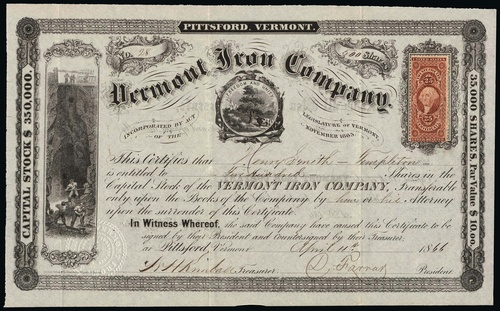 PITTSFORD, VERMONT.
No. 28
600 Shares
Vermont Iron Company.
INCORPORATED BY ACT
OF THE
LEGISLATURE OF VERMONT,
NOVEMBER 1865.
CAPITAL STOCK $ 350,000.
35,000 SHARES. Par Value $ 10.00.
This Certifies that Henry Smith Templeton
is entitled to Six Hundred Shares in the
Capital Stock of the VERMONT IRON COMPANY, Transferable
only upon the Books of the Company by him or his Attorney
upon the surrender of this Certificate.
In Witness Whereof, the said Company have caused this Certificate to be
signed by their President and Countersigned by their Treasurer,
at Pittsford, Vermont April 11th 1866
Treasurer. President